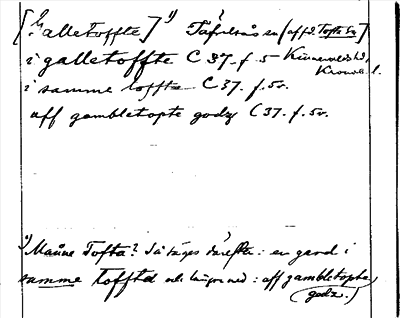 [Galletoffte] 1) Tåfvelsås sn [aff d. Tofta sn]
i galletoffte C 37. f. 5 Kinnevalds hd, Kronob. l.
i samme toffte C 37. f. 5v.
aff gambletopte godz C 37. f. 5v.
1) Månne Tofta? Så säges därefter: en gard i
samme tofftd och längre ned: aff gambletopte
godz.)